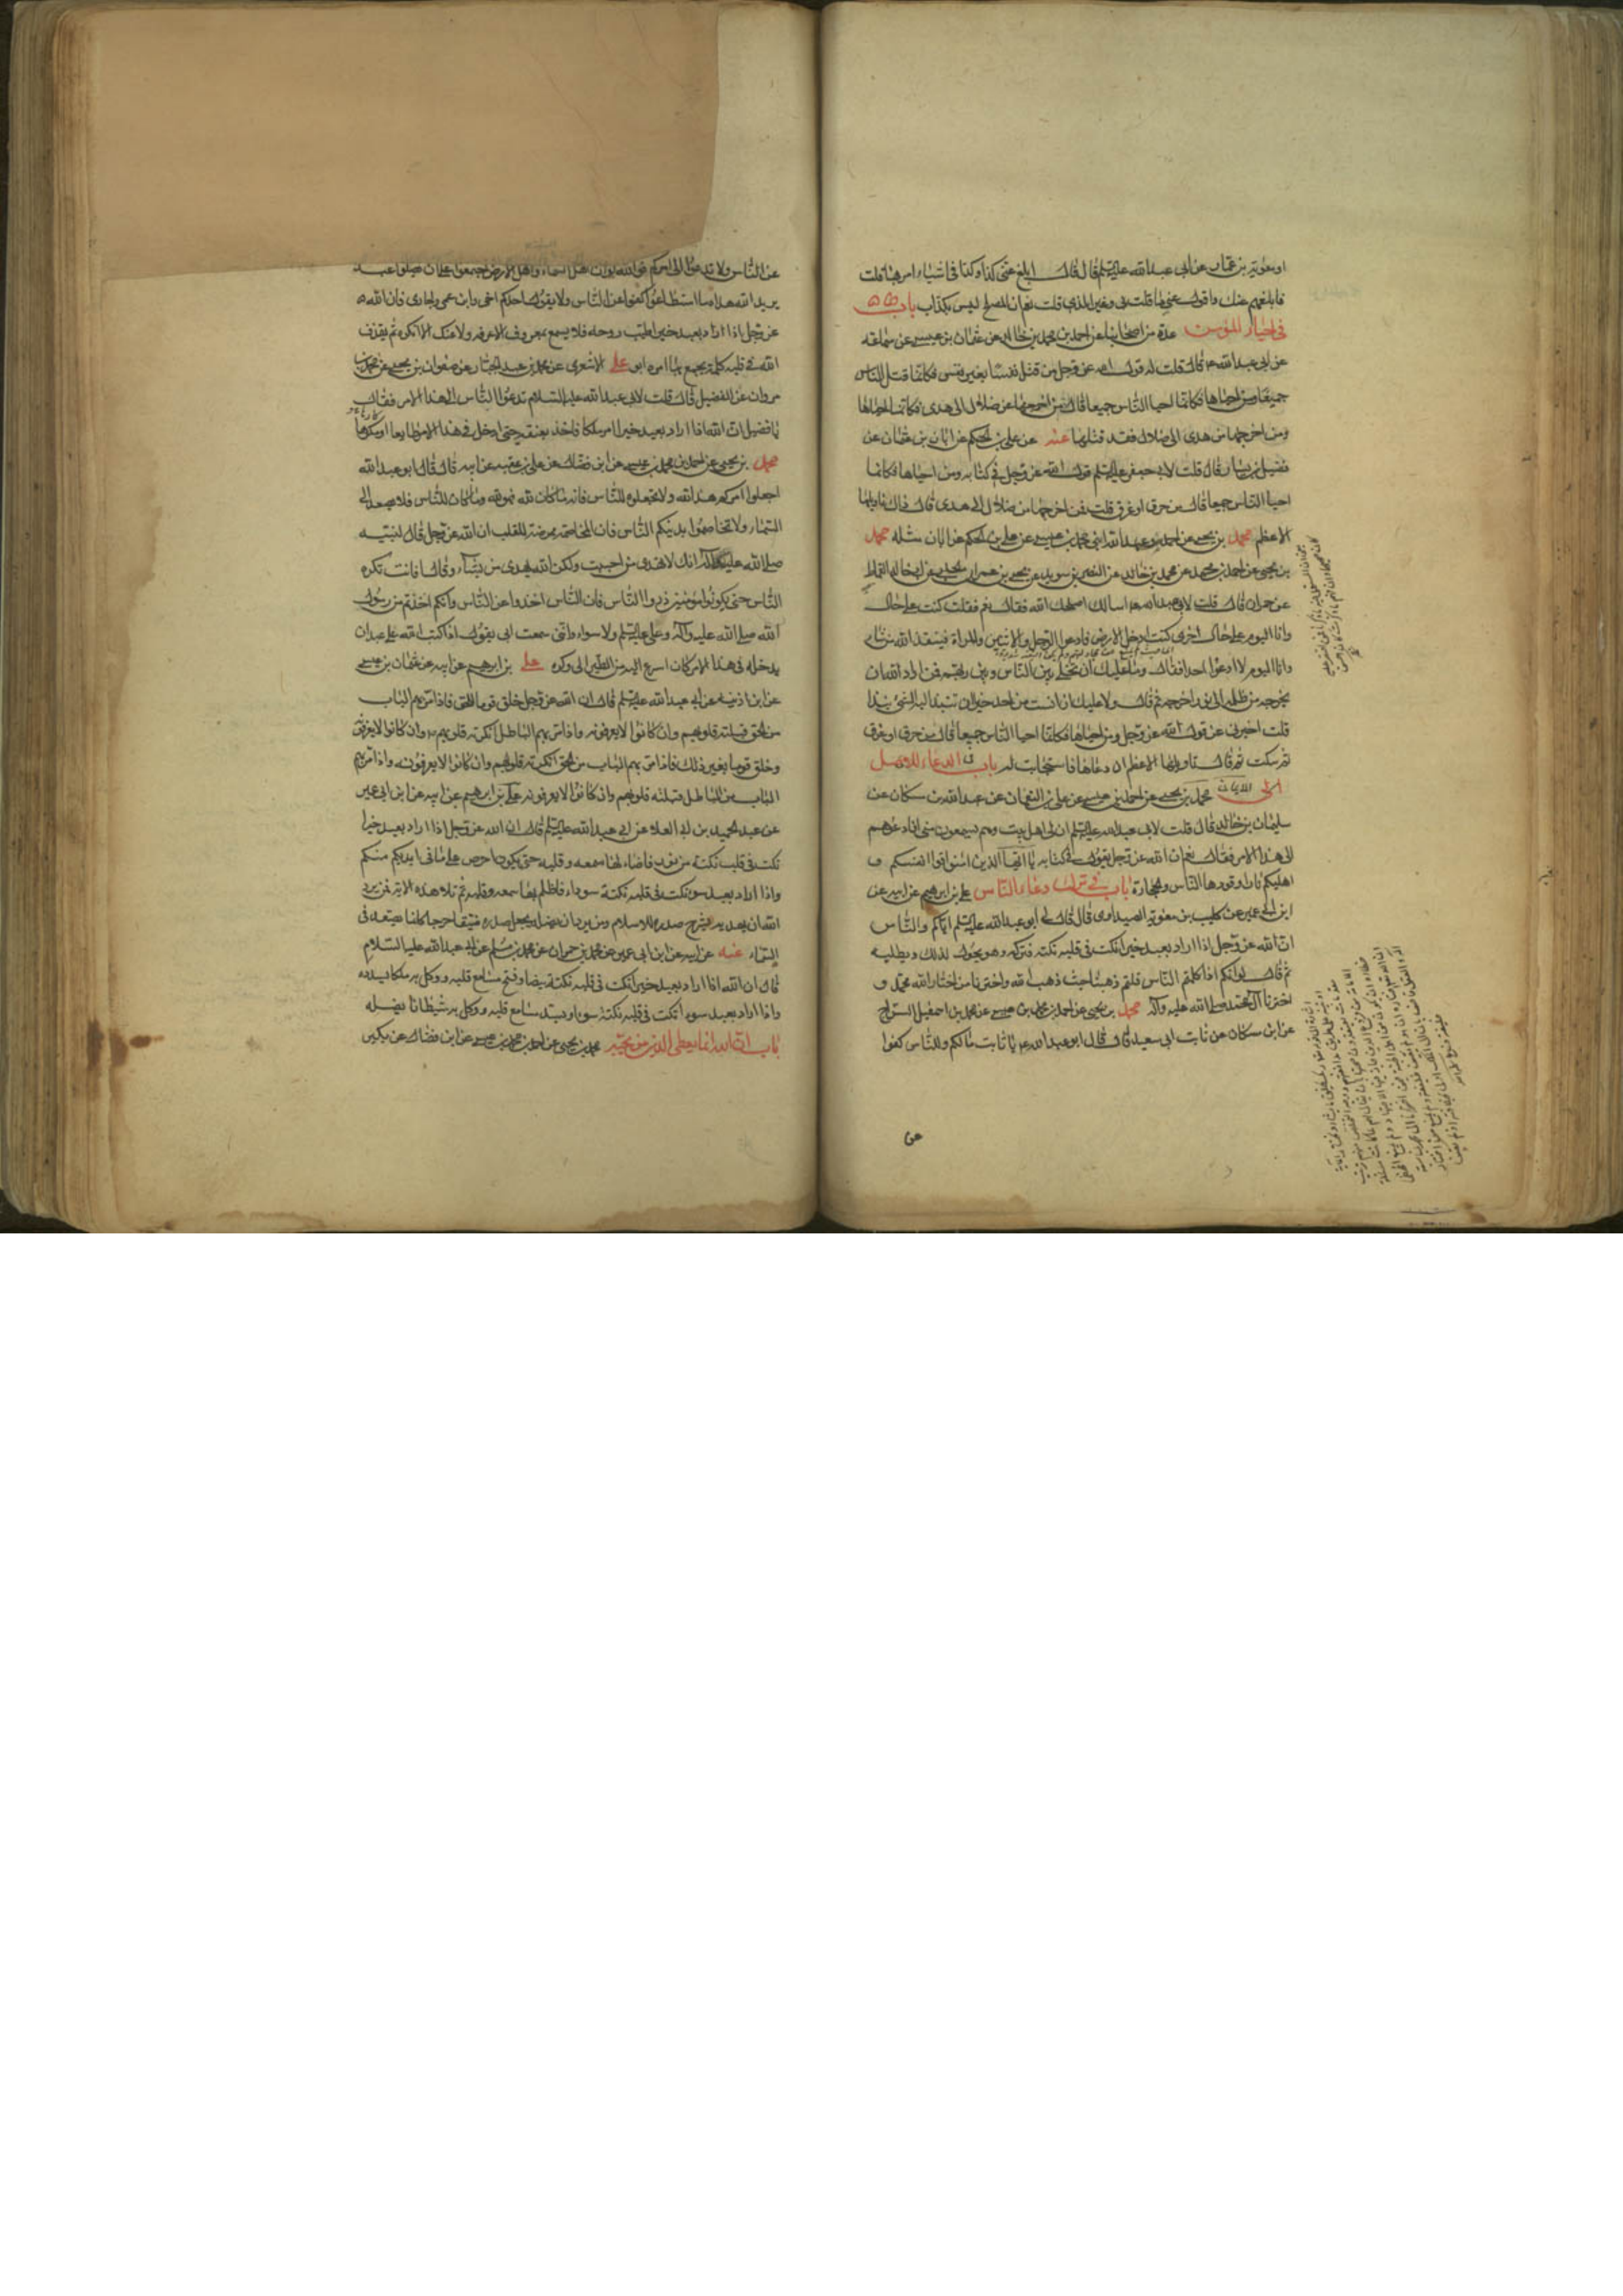 او معوية بن عمار عن ابى عبد الله عليه السلم قال قال ابلغ عنى كذا وكذا فى اشياء امر بها قلت
فابلغهم عنك واقول عنى ما قلت لى وغير الذى قلت قال نعم ان المصلح ليس بكذاب باب
فى احياء المؤمن عدة من اصحابنا عن احمد بن محمد بن خالد عن عثمان بن عيسى عن سماعة
عن ابى عبد الله ع قال قلت له قول الله عز وجل من قتل نفسا بغير نفس فكانما قتل الناس
جميعا ومن احياها فكانما احيا الناس جميعا قال من اخرجها من ضلال الى هدى فكانما احياها
ومن اخرجها من هدى الى ضلال فقد قتلها عنه عن على بن الحكم عن ابان بن عثمان عن
فضيل بن يسار قال قلت لابى جعفر عليه السلم قول الله عز وجل فى كتابه ومن احياها فكانما
احيا الناس جميعا قال من حرق او غرق قلت فمن اخرجها من ضلال الى هدى قال ذاك تاويلها
الاعظم محمد بن يحيى عن احمد وعبد الله ابنى محمد بن عيسى عن على بن الحكم عن ابان مثله محمد
بن يحيى عن احمد بن محمد عن محمد بن خالد عن النضر بن سويد عن يحيى بن عمران الحلبى عن ابى خالد القماط
عن حمران قال قلت لابى عبد الله ع اسالك اصلحك الله فقال نعم فقلت كنت على حال
وانا اليوم على حال اخرى كنت ادخل الارض فادعو الرجل والاثنين والمراة فينقذ الله من شاء
وانا اليوم لا ادعو احدا فقال وما عليك ان تخلى بين الناس وبين ربهم فمن اراد الله ان
يخرجه من ظلمة الى نور اخرجه ثم قال ولا عليك ان انست من احد خيرا ان تنبذ اليه الشئ نبذا
قلت اخبرنى عن قول الله عز وجل ومن احياها فكانما احيا الناس جميعا قال من حرق او غرق
ثم سكت ثم قال تاويلها الاعظم ان دعاها فاستجابت له باب فى الدعاء للاهل
الى الايمان محمد بن يحيى عن احمد بن محمد بن عيسى عن على بن النعمان عن عبد الله بن مسكان عن
سليمان بن خالد قال قلت لابى عبد الله عليه السلم ان لى اهل بيت وهم يسمعون منى افادعوهم
الى هذا الامر فقال نعم ان الله عز وجل يقول فى كتابه يا ايها الذين امنوا قوا انفسكم و
اهليكم نارا وقودها الناس والحجارة باب فى ترك دعاء الناس على بن ابرهيم عن ابيه عن
ابن ابى عمير عن كليب بن معوية الصيداوى قال قال لى ابو عبد الله عليه السلم اياكم والناس
ان الله عز وجل اذا اراد بعبد خيرا نكت فى قلبه نكتة فتركه وهو يجول لذلك ويطلبه
ثم قال لو انكم اذا كلمتم الناس قلتم ذهبنا حيث ذهب الله واخترنا من اختار الله محمد و
اخترنا آل محمد صلى الله عليه وآله محمد بن يحيى عن احمد بن محمد بن عيسى عن محمد بن اسمعيل السراج
عن ابن مسكان عن ثابت ابى سعيد قال قال ابو عبد الله ع يا ثابت مالكم وللناس كفوا
عن
عن الناس ولا تدعوا احدا الى امركم فوالله لو ان اهل السماء واهل الارض اجتمعوا على ان يضلوا عبدا
يريد الله هداه ما استطاعوا كفوا عن الناس ولا يقول احدكم اخى وابن عمى وجارى فان الله
عز وجل اذا اراد بعبد خيرا طيب روحه فلا يسمع بمعروف الا عرفه ولا منكر الا انكره ثم يقذف
الله فى قلبه كلمة يجمع بها امره ابو على الاشعرى عن محمد بن عبد الجبار عن صفوان بن يحيى عن محمد بن
مروان عن الفضيل قال قلت لابى عبد الله عليه السلام ندعو الناس الى هذا الامر فقال
يا فضيل ان الله اذا اراد بعبد خيرا امر ملكا فاخذ بعنقه حتى ادخله فى هذا الامر طايعا او مكرها
محمد بن يحيى عن احمد بن محمد بن عيسى عن ابن فضال عن على بن عقبة عن ابيه قال قال ابو عبد الله
اجعلوا امركم هذا لله ولا تجعلوه للناس فانه ما كان لله فهو لله وما كان للناس فلا يصعد الى
السماء ولا تخاصموا بدينكم الناس فان المخاصمة ممرضة للقلب ان الله عز وجل قال لنبيه
صلى الله عليه وآله انك لا تهدى من احببت ولكن الله يهدى من يشاء وقال افانت تكره
الناس حتى يكونوا مؤمنين ذروا الناس فان الناس اخذوا عن الناس وانكم اخذتم من رسول
الله صلى الله عليه وآله وعلى عليه السلم ولا سواء وانى سمعت ابى يقول اذا كتب الله على عبد ان
يدخله فى هذا الامر كان اسرع اليه من الطير الى وكره على بن ابرهيم عن ابيه عن عثمان بن عيسى
عن ابن اذينة عن ابى عبد الله عليه السلم قال ان الله عز وجل خلق قوما للحق فاذا مر بهم الباب
من الحق قبلته قلوبهم وان كانوا لا يعرفونه واذا مر بهم الباطل انكرته قلوبهم وان كانوا لا يعرفونه
وخلق قوما لغير ذلك فاذا مر بهم الباب من الحق انكرته قلوبهم وان كانوا لا يعرفونه واذا مر بهم
الباب من الباطل قبلته قلوبهم وان كانوا لا يعرفونه على بن ابرهيم عن ابيه عن ابن ابى عمير
عن عبد الحميد بن ابى العلاء عن ابى عبد الله عليه السلم قال ان الله عز وجل اذا اراد بعبد خيرا
نكت فى قلبه نكتة من نور فاضاء لها سمعه وقلبه حتى يكون احرص على ما فى ايديكم منكم
واذا اراد بعبد سوءا نكت فى قلبه نكتة سوداء فاظلم لها سمعه وقلبه ثم تلا هذه الاية فمن يرد
الله ان يهديه يشرح صدره للاسلام ومن يرد ان يضله يجعل صدره ضيقا حرجا كانما يصعد فى
السماء عنه عن ابيه عن ابن ابى عمير عن محمد بن حمران عن محمد بن مسلم عن ابى عبد الله عليه السلام
قال ان الله اذا اراد بعبد خيرا نكت فى قلبه نكتة بيضا وفتح مسامع قلبه ووكل به ملكا يسدده
واذا اراد بعبد سوءا نكت فى قلبه نكتة سودا وسد مسامع قلبه ووكل به شيطانا يضله
باب ان الله انما يعطى الدين من يحبه محمد بن يحيى عن احمد بن محمد بن عيسى عن ابن فضال عن بكير